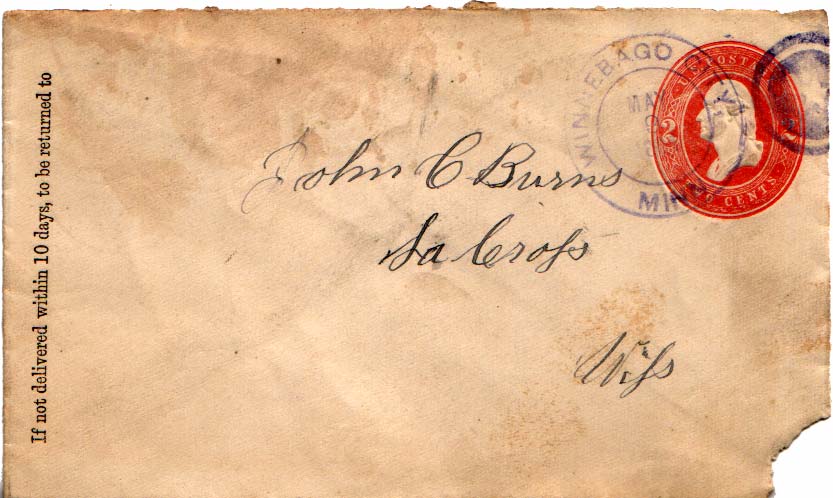 If not delivered within 10 days, to be returned to
WINNEBAGO CITY
MAY
MINN
U.S. POSTAGE
2 2
TWO CENTS
John C Burns
La Cross
Wiss